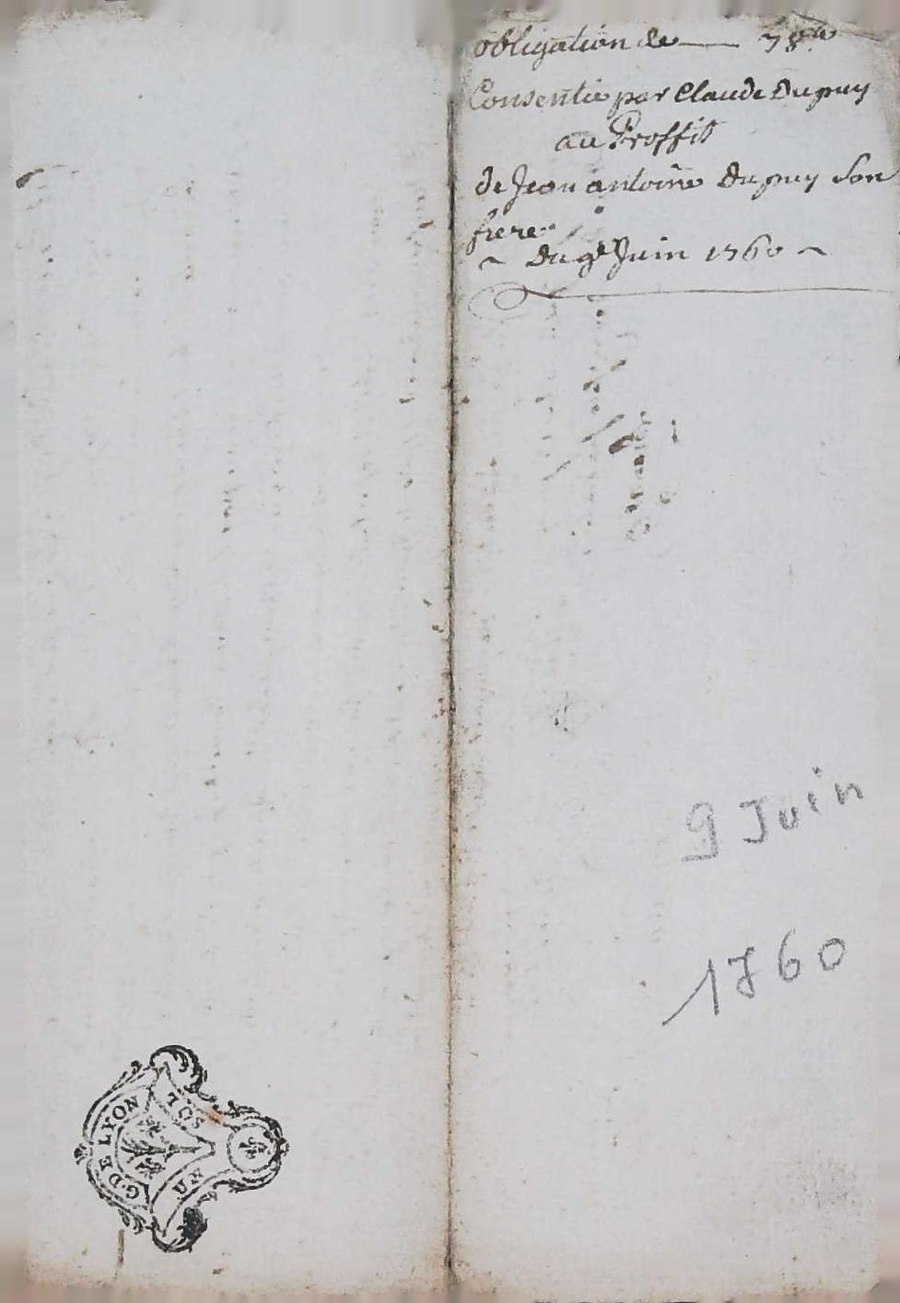 obligation de — 78 lt
Consentie par Claude Dupuy
au Proffit
de Jean antoine Dupuy Son
frere
~ Du 9e Juin 1760 ~
9 Juin
1760
G. DE LYON
UN SOL